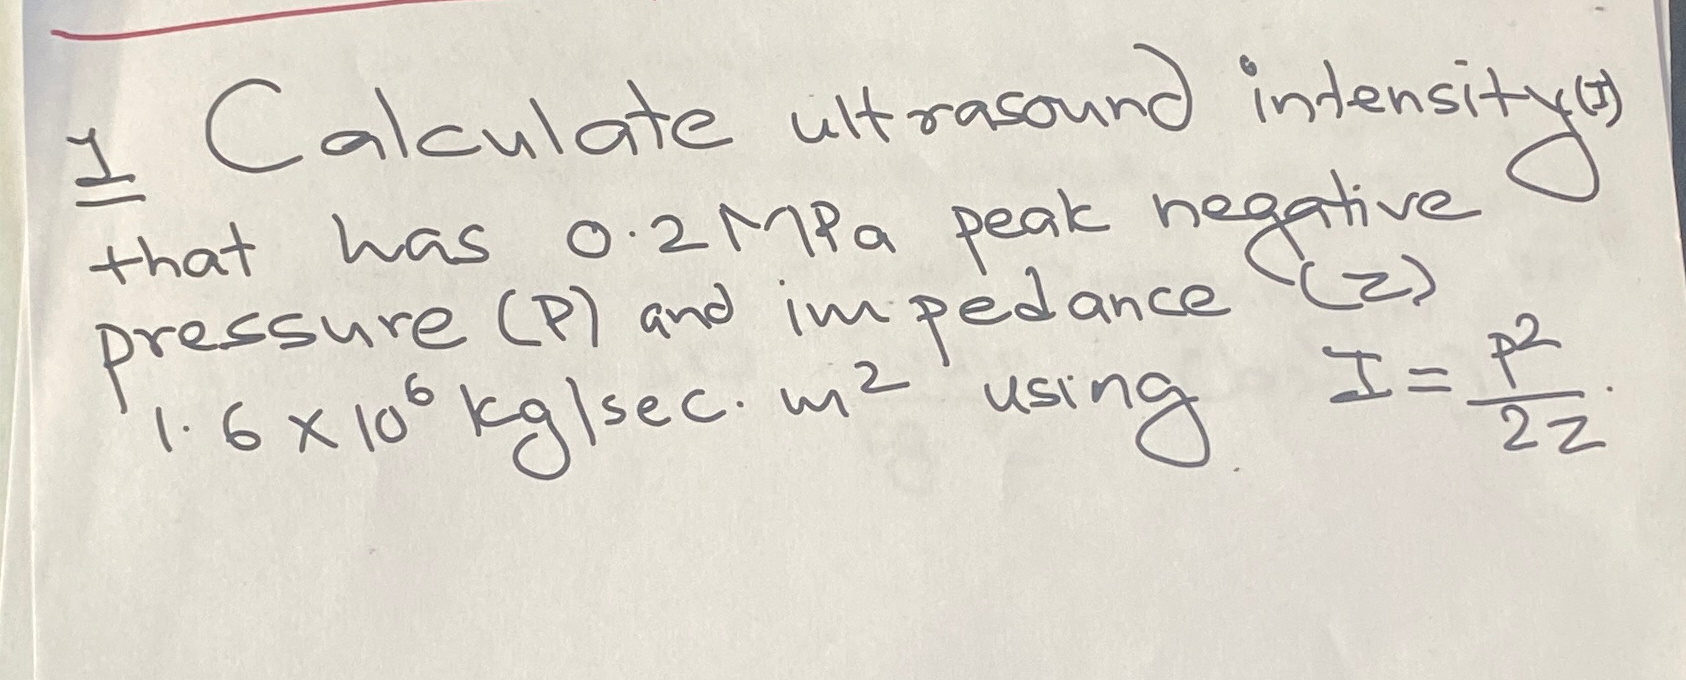 1 Calculate ultrasound intensity(I)
that has 0.2 MPa peak negative
pressure (P) and impedance (Z)
1.6 x 10⁶ kg/sec. m² using I = P²/2Z.